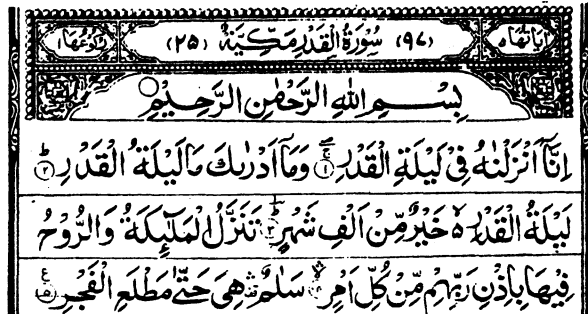 اٰیَاتُهَا ٥ (٩٧) سُوْرَةُ الْقَدْرِ مَكِّیَّةٌ (٢٥) رُكُوْعُهَا ١
بِسْمِ اللهِ الرَّحْمٰنِ الرَّحِیْمِ
اِنَّاۤ اَنْزَلْنٰهُ فِیْ لَیْلَةِ الْقَدْرِ ۚۖ﴿١﴾ وَمَاۤ اَدْرٰىكَ مَا لَیْلَةُ الْقَدْرِ ؕ﴿٢﴾
لَیْلَةُ الْقَدْرِ ۙ۬ خَیْرٌ مِّنْ اَلْفِ شَهْرٍ ؕ﴿٣﴾ تَنَزَّلُ الْمَلٰٓئِكَةُ وَالرُّوْحُ
فِیْهَا بِاِذْنِ رَبِّهِمْ مِّنْ كُلِّ اَمْرٍ ۙۛ﴿٤﴾ سَلٰمٌ ۛ۫ هِیَ حَتّٰى مَطْلَعِ الْفَجْرِ ﴿٥﴾ ع